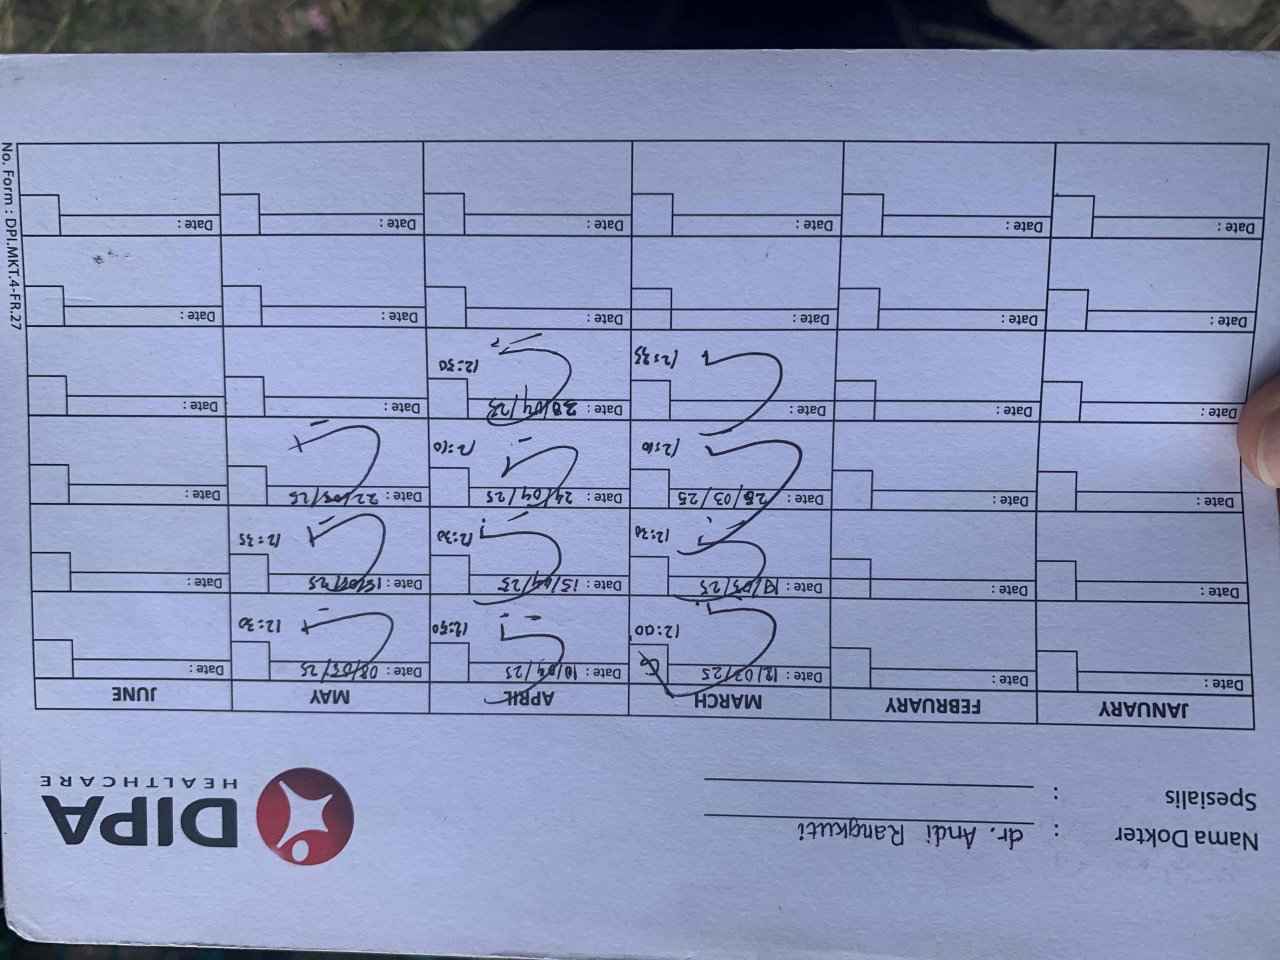 Nama Dokter : dr. Andi Rangkuti
Spesialis :
DIPA
HEALTHCARE
JANUARY FEBRUARY MARCH APRIL MAY JUNE
Date : Date : Date : 12/03/25 Date : 10/04/25 Date : 08/05/25 Date :
12:00 12:50 12:30
Date : Date : Date : 19/03/25 Date : 15/04/25 Date : 15/05/25 Date :
12:30 12:30 12:35
Date : Date : Date : 26/03/25 Date : 24/04/25 Date : 22/05/25 Date :
12:10 12:10
Date : Date : Date : Date : 30/04/25 Date : Date :
12:35 12:50
Date : Date : Date : Date : Date : Date :
Date : Date : Date : Date : Date : Date :
No. Form : DPI.MKT.4-FR.27